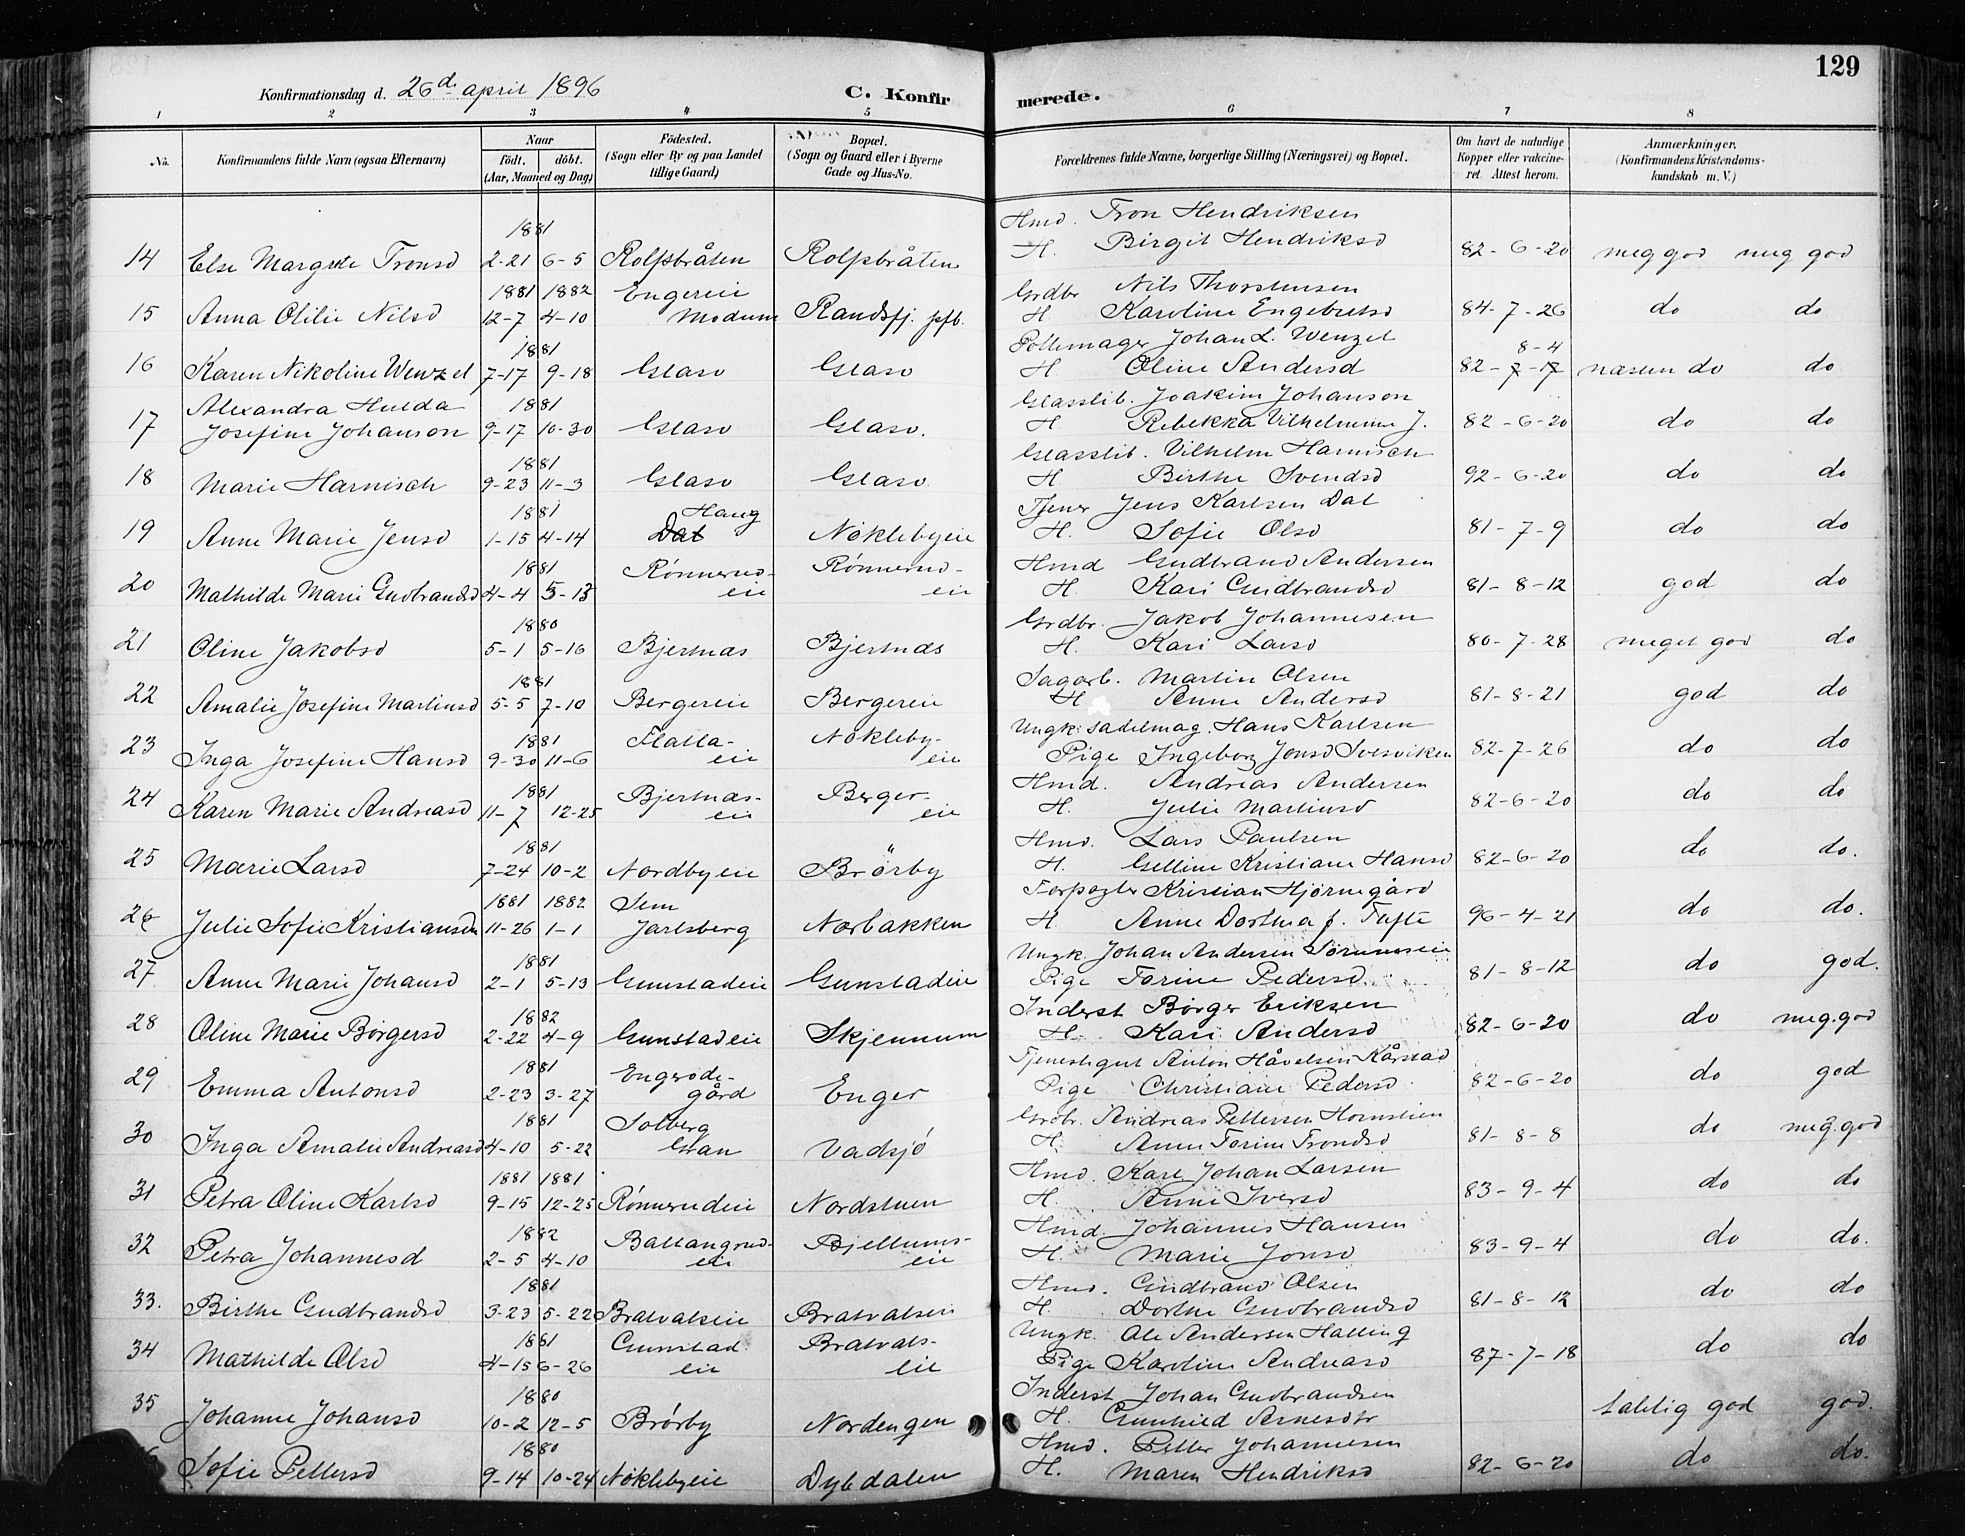 129
Konfirmationsdag d. 26de april 1896 C. Konfirmerede.
1 2 3 4 5 6 7 8
No. Konfirmandens fulde Navn (ogsaa Efternavn) Naar født. døbt. (Aar, Maaned og Dag) Fødested. (Sogn eller By og paa Landet tillige Gaard) Bopæl. (Sogn og Gaard eller i Byerne Gade og Hus-No. Forældrenes fulde Navne, borgerlige Stilling (Næringsvei) og Bopæl. Om havt de naturlige Kopper eller vakcineret. Attest herom. Anmærkninger, (Konfirmandens Kristendomskundskab m. V.)
1881 Hmd. Tron Hendriksen
14 Else Margrete Tronsd 2-21 6-5 Rolfsbråten Rolfsbråten H. Birgit Hendriksd 82-6-20 meg god meg god
1881 1882 Engereie Grdbr Nils Thorstensen
15 Anna Olilie Nilsd 12-7 4-10 Modum Randsfj. pfb. H Karoline Engebretsd 84-7-26 do do
1881 Pottemager Johan L. Wenzel 8-4
16 Karen Nikoline Wenzel 7-17 9-18 Glaso Glaso H Oline Andersd 82-7-17 næsten do do
Alexandra Hulda 1881 Glasslib. Joakim Johanson
17 Josefine Johanson 9-17 10-30 Glaso Glaso. H Rebekka Vilhelmine J. 82-6-20 do do
1881 Glasslib. Vilhelm Harnisch
18 Marie Harnisch 9-23 11-3 Glaso Glaso H Birthe Svendsd 92-6-20 do do
1881 Haug Tjener Jens Karlsen Dal
19 Anne Marie Jensd 1-15 4-14 Dal Nøklebyeie H. Sofie Olsd 81-7-9 do do
1881 Rønnerud- Rønnerud- Hmd Gudbrand Andersen
20 Mathilde Marie Gudbrandsd 4-4 5-15 eie eie H. Kari Gudbrandsd 81-8-12 god do
1880 Grdbr. Jakob Johannesen
21 Oline Jakobsd 5-1 5-16 Bjertnæs Bjertnæs H. Kari Larsd 80-7-28 meget god do
1881 Sagarb. Martin Olsen
22 Amalie Josefine Martinsd 5-5 7-10 Bergereie Bergereie H Anne Andersd 81-8-21 god do
1881 Flatla- Nøkleby- Ungk: sadelmag. Hans Karlsen
23 Inga Josefine Hansd 9-30 11-6 eie eie Pige Ingeborg Jonsd Svesviken 82-7-26 do do
1881 Bjertnæs- Berger- Hmd. Andreas Andersen
24 Karen Marie Andreasd 11-7 12-25 eie eie H. Julie Martinsd 82-6-20 do do
1881 Hmd. Lars Paulsen
25 Marie Larsd 7-24 10-2 Nordbyeie Brörby H. Gelline Kristiane Hansd 82-6-20 do do.
1881 1882 Sem Forpagter Kristian Hjørnegård
26 Julie Sofie Kristiansen 11-26 1-1 Jarlsberg Norbakken H. Anne Dorthea f. Tufte 96-4-21 do do.
1881 Ungk. Johan Andersen Sørumseie
27 Anne Marie Johansd 2-1 5-13 Gunstadeie Gunstadeie Pige Torine Pedersd 81-8-12 do god.
1882 Inderst Børger Eriksen
28 Oline Marie Børgersd 2-22 4-9 Gunstadeie Skjennum H. Kari Andersd 82-6-20 do meg.god
1881 Engerode- Tjenestegut Anton Håvelsen Kårstad
29 Emma Antonsd 2-23 3-27 gård Enger Pige Christiane Pedersd 82-6-20 do god
1881 Solberg Grdbr. Andreas Pettersen Hornslien
30 Inga Amalie Andreasd 4-10 5-22 Gran Vadsjø H. Anne Torine Trondsd 81-8-8 do meg.god
1881 1881 Hmd. Karl Johan Larsen
31 Petra Oline Karlsd 9-15 12-25 Rønnerudeie Nordstuen H. Anne Iversd 83-9-4 do do
1882 Ballangrud- Bjellums- Hmd. Johannes Hansen
32 Petra Johannesd 2-5 4-10 eie eie H. Marie Jonsd 83-9-4 do do.
1881 Hmd. Gudbrand Olsen
33. Birthe Gudbrandsd 3-23 5-22 Bratvalseie Bratvalseie H. Dorthe Gudbrandsd 81-8-12 do do
1881 Gunstad. Bratvals- Ungk. Ole Andersen Halling
34 Mathilde Olsd 4-15 6-26 eie eie Pige Karoline Andreasd 87-7-18 do do
1880 Inderst Johan Gudbrandsen
35 Johanne Johansd 10-2 12-5 Brørby Nordengen H. Gunhild Arnesdtr talelig god god.
1880 Hmd. Petter Johannesen
6 Sofie Pettersd 9-14 10-24 Nøklebyeie Dybdalen H. Maren Hendriksd 82-6-20 do do.